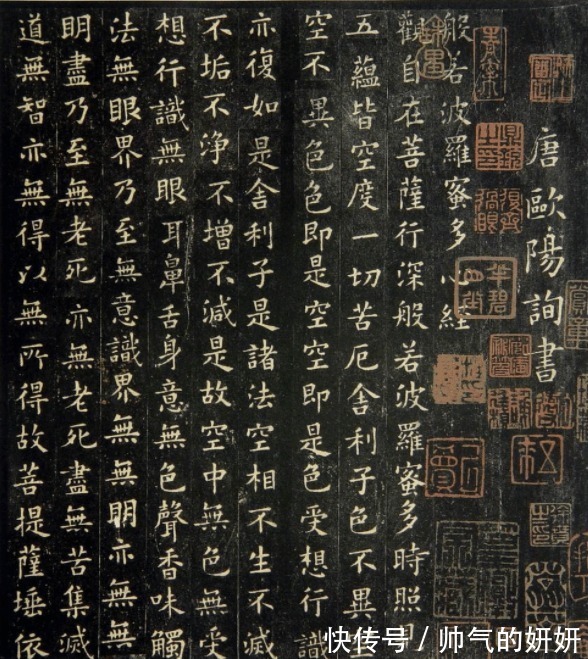 唐歐陽詢書
般若波羅蜜多心經
觀自在菩薩行深般若波羅蜜多時照見
五蘊皆空度一切苦厄舍利子色不異
空不異色色即是空空即是色受想行識
亦復如是舍利子是諸法空相不生不滅
不垢不淨不增不減是故空中無色無受
想行識無眼耳鼻舌身意無色聲香味觸
法無眼界乃至無意識界無無明亦無無
明盡乃至無老死亦無老死盡無苦集滅
道無智亦無得以無所得故菩提薩埵依
快传号 / 帅气的妍妍